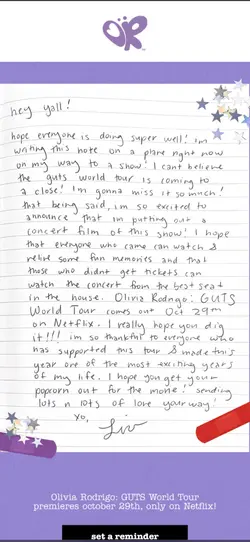 OR
hey yall!
hope everyone is doing super well! im
writing this note on a plane right now
on my way to a show! I cant believe
the guts world tour is coming to
a close! I'm gonna miss it so much!
that being said, im so excited to
announce that im putting out a
concert film of this show! I hope
that everyone who came can watch &
relive some fun memories and that
those who didnt get tickets can
watch the concert from the best seat
in the house. Olivia Rodrigo: GUTS
World Tour comes out Oct 29th
on Netflix. I really hope you dig
it!!! im so thankful to everyone who
has supported this tour & made this
year one of the most exciting years
of my life. I hope you get your
popcorn out for the movie! sending
lots n lots of love your way!
xo,
Liv
Olivia Rodrigo: GUTS World Tour
premieres october 29th, only on Netflix!
set a reminder